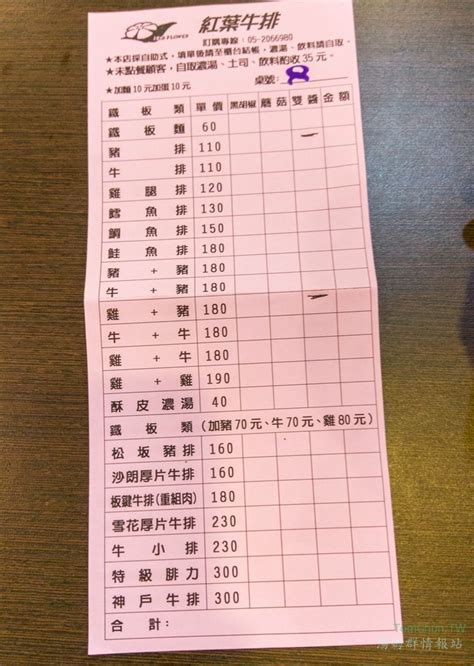 紅葉牛排
訂購專線：05-2066980
★本店採自助式，填單後請至櫃台結帳，濃湯、飲料請自取。
★未點餐顧客，自取濃湯、土司、飲料酌收35元。
★加麵10元加蛋10元 桌號：8
鐵板類 單價 黑胡椒 蘑菇 雙醬 金額
鐵板麵 60
豬排 110
牛排 110
雞腿排 120
鱈魚排 130
鯛魚排 150
鮭魚排 180
豬+豬 180
牛+豬 180
雞+豬 180
牛+牛 180
雞+牛 180
雞+雞 190
酥皮濃湯 40
鐵板類 (加豬70元、牛70元、雞80元)
松坂豬排 160
沙朗厚片牛排 160
板鍵牛排(重組肉) 180
雪花厚片牛排 230
牛小排 230
特級腓力 300
神戶牛排 300
合計：